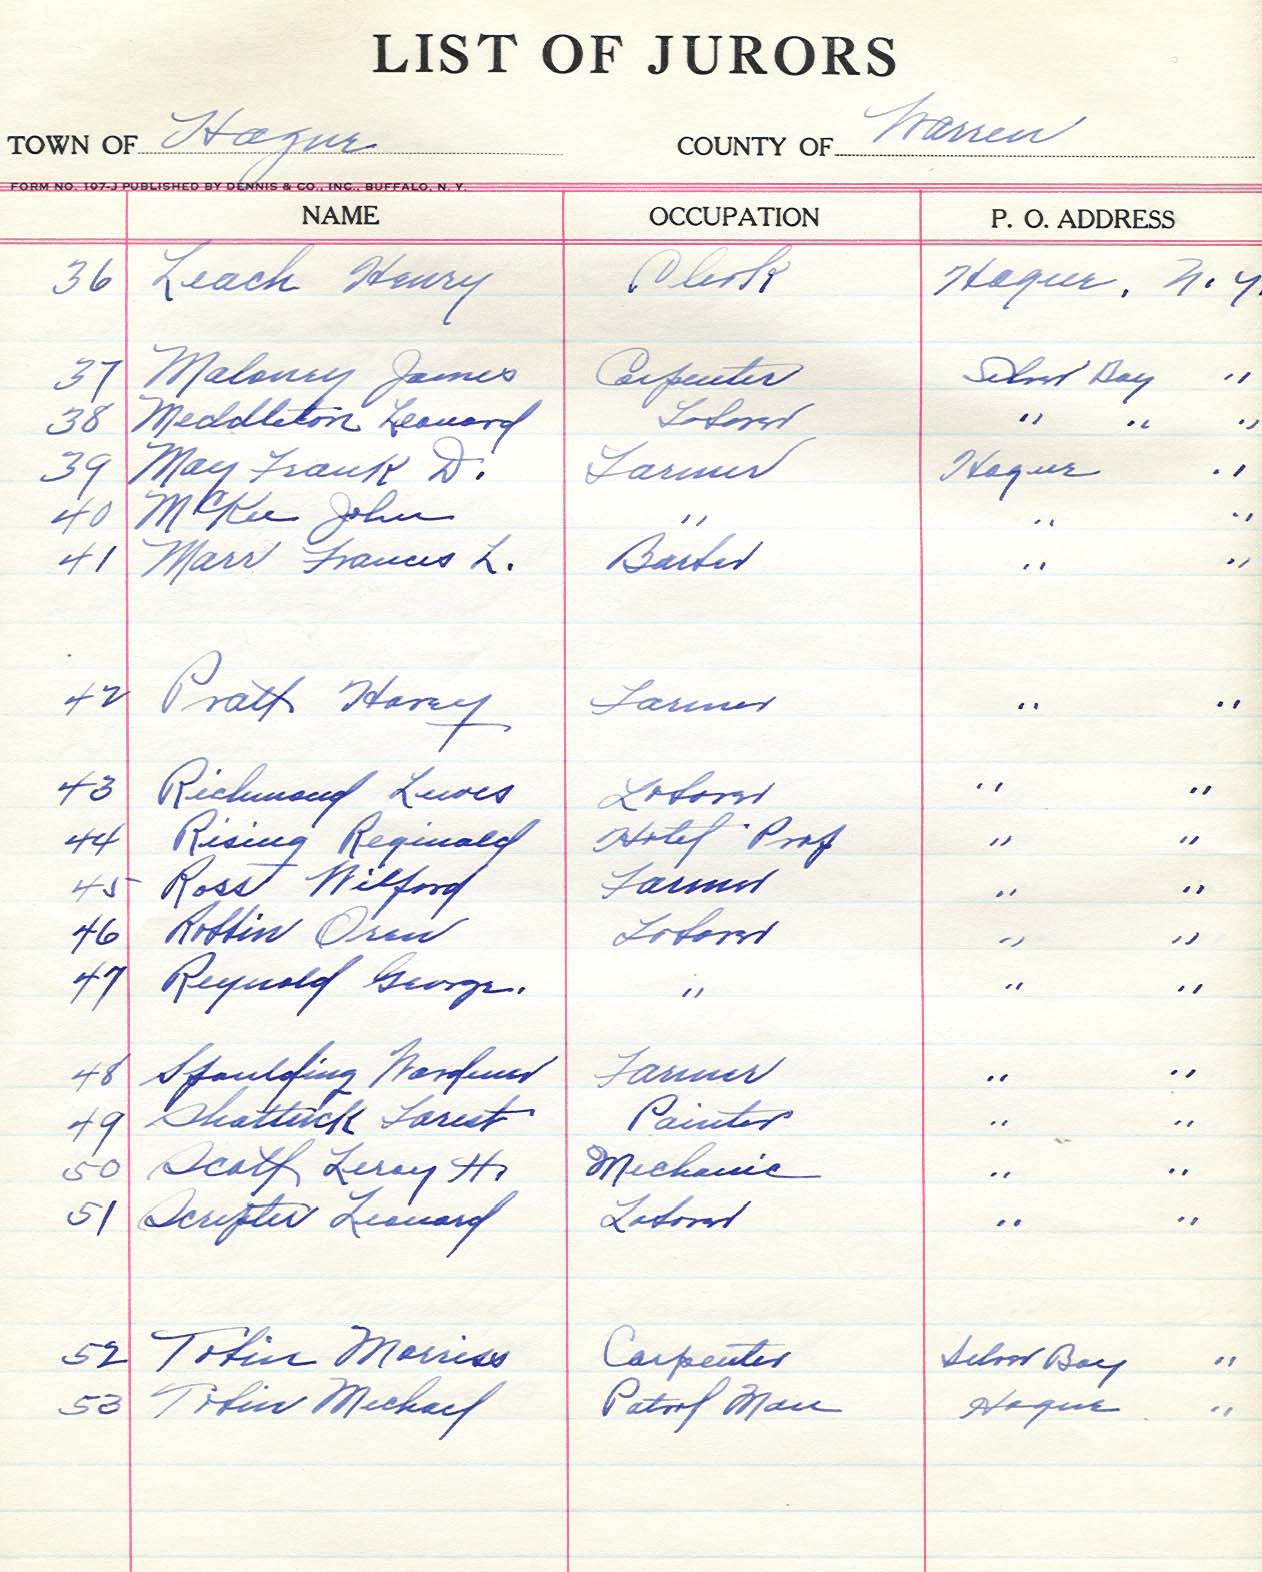 LIST OF JURORS
TOWN OF Hague COUNTY OF Warren
FORM NO. 107-J PUBLISHED BY DENNIS & CO., INC., BUFFALO, N. Y.
NAME OCCUPATION P. O. ADDRESS
36 Leach Henry Clerk Hague, N.Y.
37 Maloney James Carpenter Silver Bay "
38 Meddleton Leonard Laborer " " "
39 May Frank D. Farmer Hague "
40 McKee John " " "
41 Marr Frances L. Barber " "
42 Pratt Harvey Farmer " "
43 Richmond Lewes Laborer " "
44 Rising Reginald Hotel Prop " "
45 Ross Wilford Farmer " "
46 Robbin Oren Laborer " "
47 Reynold George. " " "
48 Spaulding Farmer " "
49 Shattuck Forest Painter " "
50 Scott Leroy H. Mechanic " "
51 Scripter Leonard Laborer " "
52 Tobin Morriss Carpenter Silver Bay "
53 Tobin Michael Patrol Man Hague "